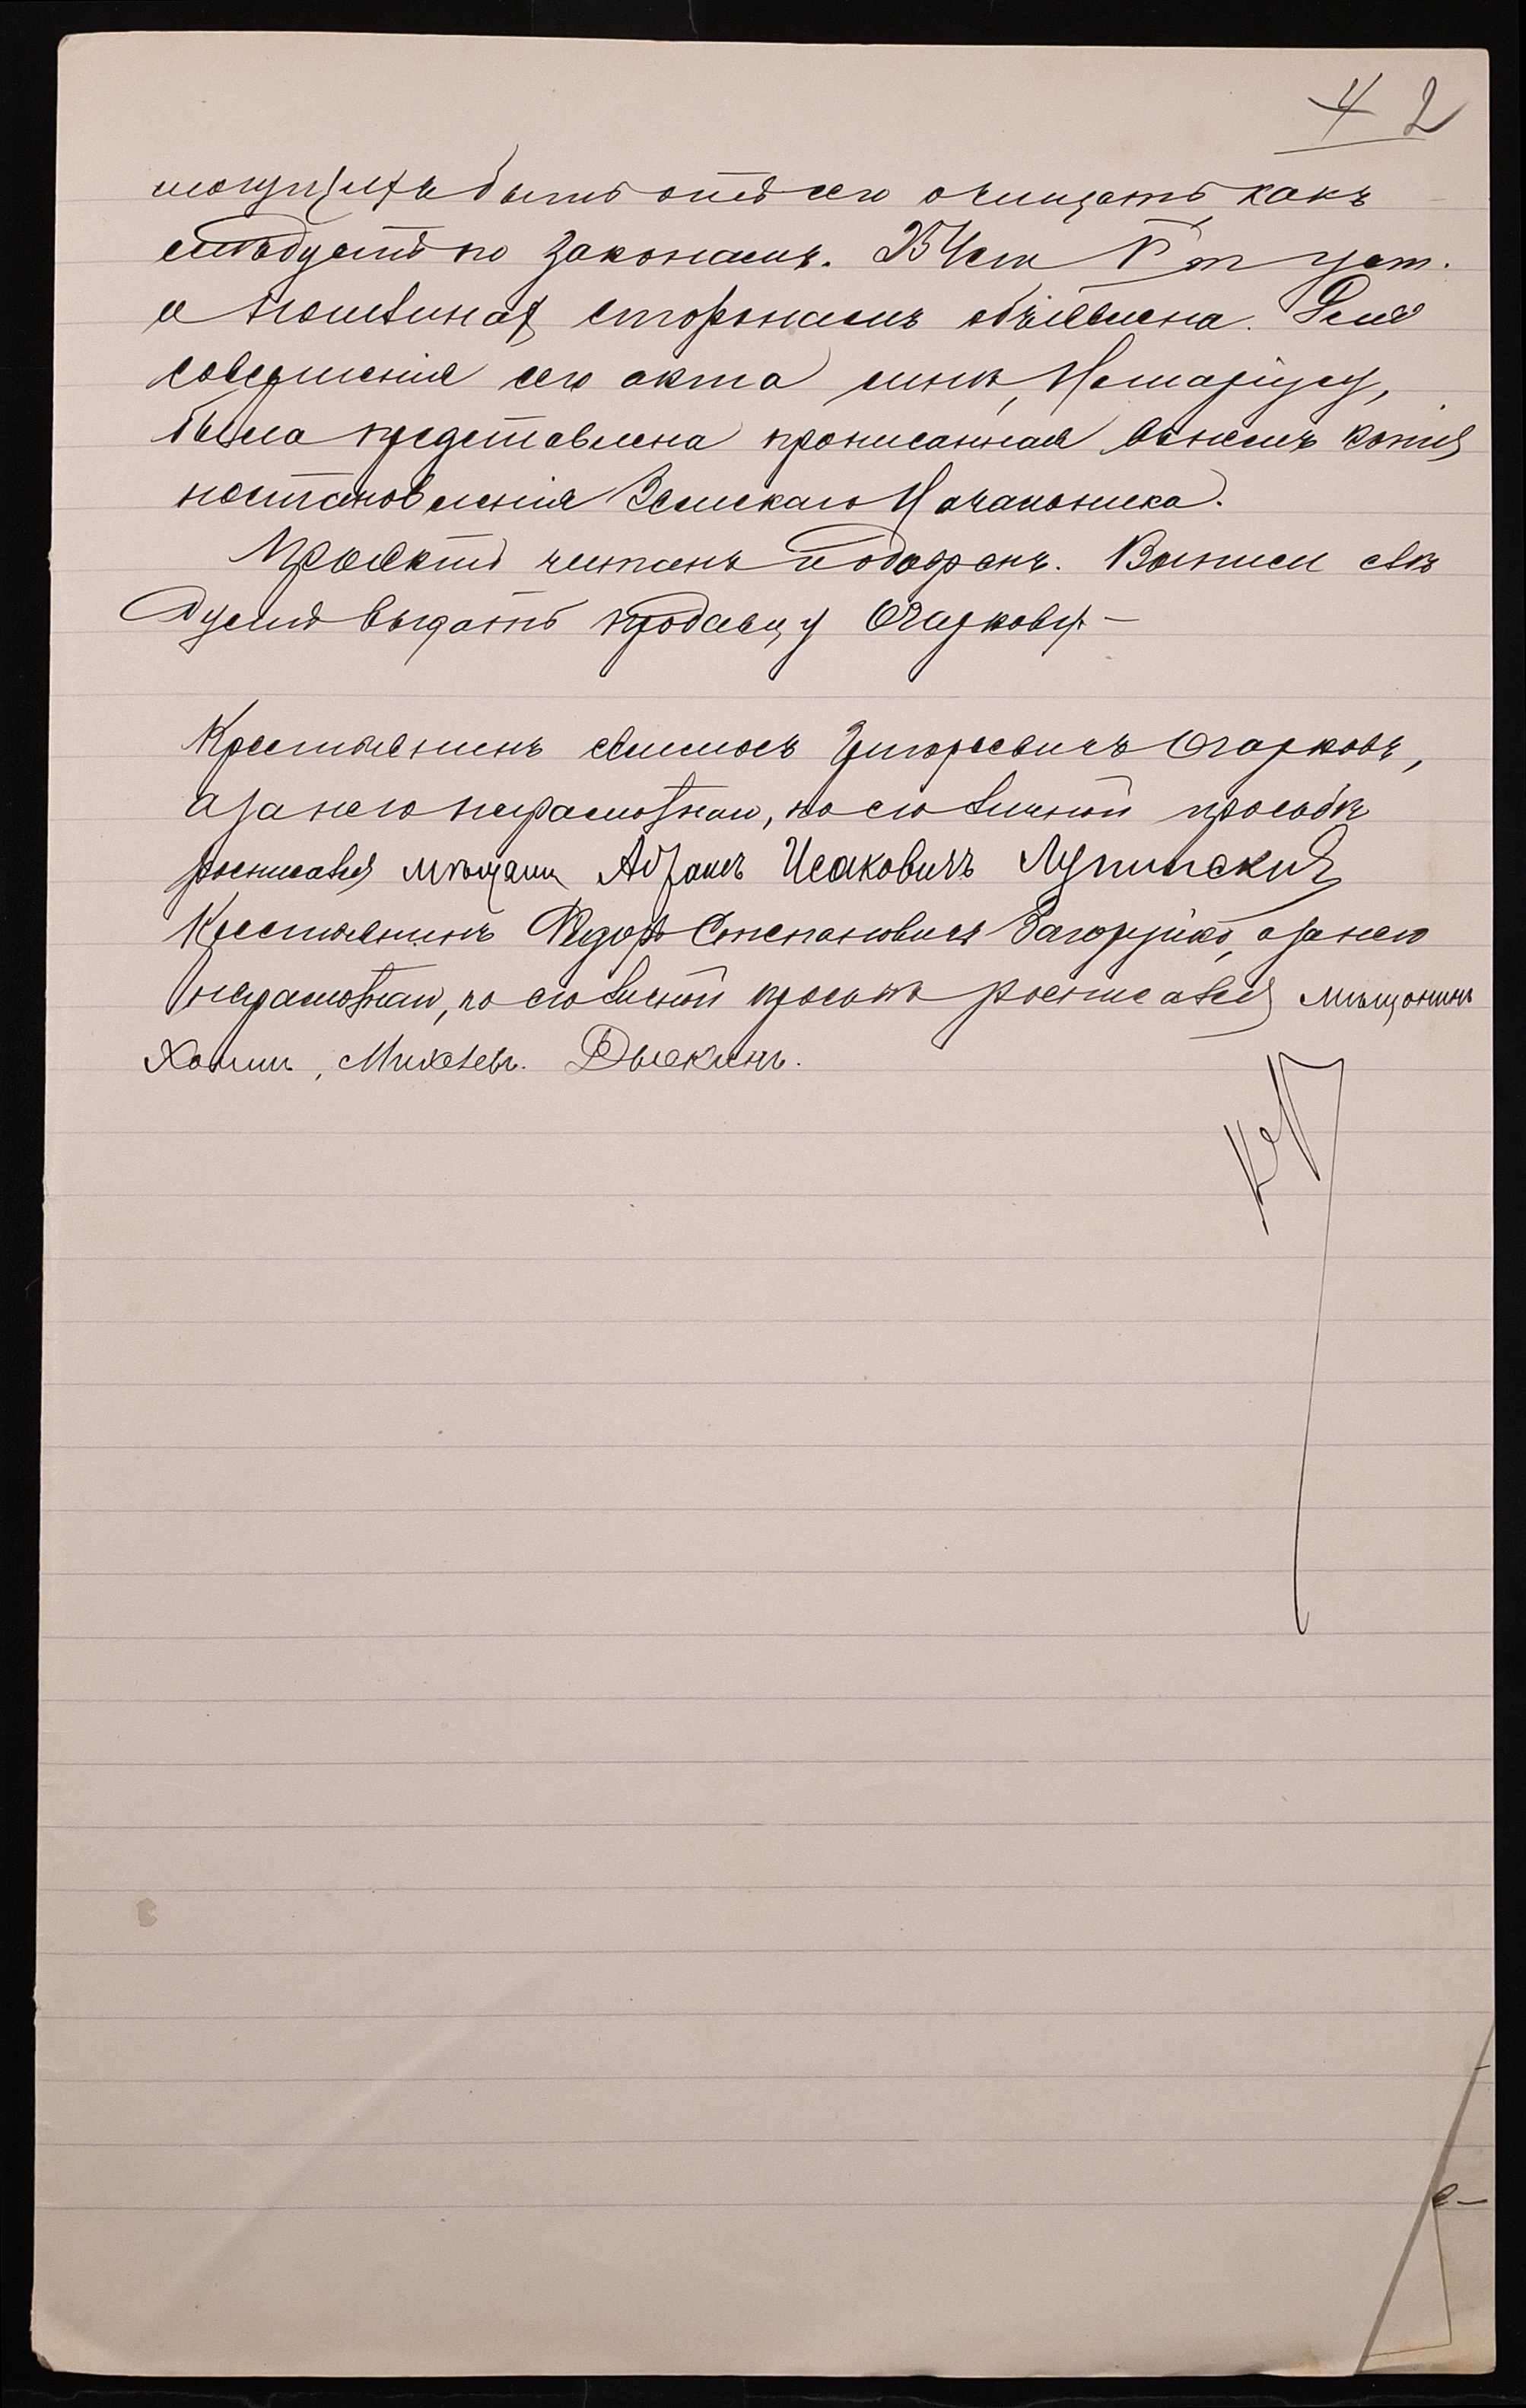 4 2
могущихъ быть отъ сего очищать, какъ
слѣдуетъ по законамъ. 254 ст. V т. уст.
о пошлинахъ сторонамъ объявлена. Для
совершенія сего акта мнѣ, Нотаріусу,
была представлена прописанная въ немъ копія
постановленія Земскаго Начальника.
Проектъ читанъ и одобренъ. Выпись слѣ
дуетъ выдать продавцу Очаркову. —
Крестьянинъ Григорьевичъ Огарковъ,
а за него неграмотнаго, по его личной просьбѣ
росписался мѣщанинъ Абрамъ Исаковичъ Лупинскій
Крестьянинъ Федоръ Степановичъ Загоруйко, а за него
неграмотнаго, по его личной просьбѣ росписался мѣщанинъ
Хаимъ, Михелевъ. Дыскинъ.